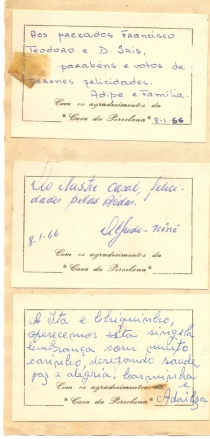 Aos prezados Francisco
Teodoro e D. Iris,
parabens e votos de
perenes felicidades.
Adipe e Família.
Com os agradecimentos da
"Casa da Porcelana" 8-1-66
Ao ilustre casal, felici-
dades pelas Bodas.
Alfredo-Nenê
8-1-66
Com os agradecimentos da
"Casa da Porcelana"
A Ita e Chiquinho,
oferecemos esta singela
lembrança com muito
carinho, desejando saúde
paz e alegria.
Com os agradecimentos da
e
"Casa da Porcelana" Adailza